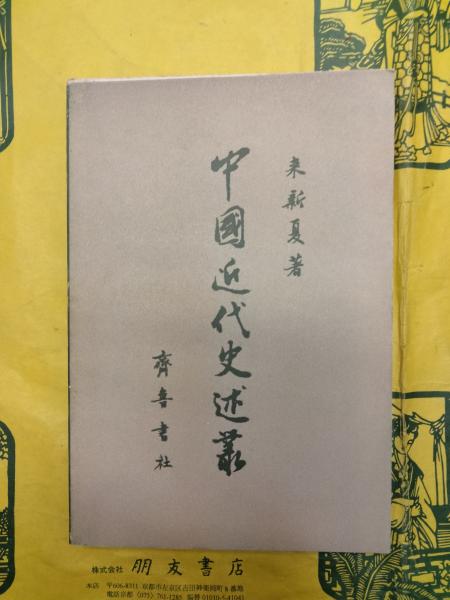 来新夏著
中國近代史述叢
齊魯書社
株式会社 朋友書店
本店 〒606-8311 京都市左京区吉田神楽岡町8番地
電話京都(075)761-1285 振替01010-5-41041